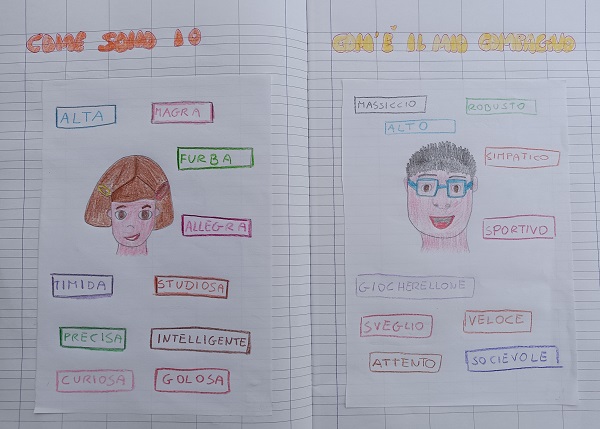 COME SONO IO
ALTA
MAGRA
FURBA
ALLEGRA
TIMIDA
STUDIOSA
PRECISA
INTELLIGENTE
CURIOSA
GOLOSA
COM'È IL MIO COMPAGNO
MASSICCIO
ROBUSTO
ALTO
SIMPATICO
SPORTIVO
GIOCHERELLONE
SVEGLIO
VELOCE
ATTENTO
SOCIEVOLE